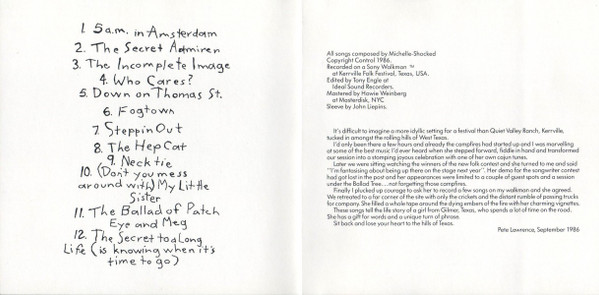 1. 5 a.m. in Amsterdam
2. The Secret Admirer
3. The Incomplete Image
4. Who Cares?
5. Down on Thomas St.
6. Fogtown
7. Steppin Out
8. The Hep Cat
9. Necktie
10. (Don't you mess
around with) My Little
Sister
11. The Ballad of Patch
Eye and Meg
12. The Secret to a Long
Life (is knowing when it's
time to go)
All songs composed by Michelle-Shocked
Copyright Control 1986.
Recorded on a Sony Walkman ™
at Kerrville Folk Festival, Texas, USA.
Edited by Tony Engle at
Ideal Sound Recorders.
Mastered by Howie Weinberg
at Masterdisk, NYC
Sleeve by John Liepins.
It's difficult to imagine a more idyllic setting for a festival than Quiet Valley Ranch, Kerrville,
tucked in amongst the rolling hills of West Texas.
I'd only been there a few hours and already the campfires had started up and I was marvelling
at some of the best music I'd ever heard when she stepped forward, fiddle in hand and transformed
our session into a stomping joyous celebration with one of her own cajun tunes.
Later we were sitting watching the winners of the new folk contest and she turned to me and said
"I'm fantasising about being up there on the stage next year". Her demo for the songwriter contest
had got lost in the post and her appearances were limited to a couple of guest spots and a session
under the Ballad Tree....not forgetting those campfires.
Finally I plucked up courage to ask her to record a few songs on my walkman and she agreed.
We retreated to a far corner of the site with only the crickets and the distant rumble of passing trucks
for company. She filled a whole tape around the dying embers of the fire with her charming vignettes.
These songs tell the life story of a girl from Gilmer, Texas, who spends a lot of time on the road.
She has a gift for words and a unique turn of phrase.
Sit back and lose your heart to the hills of Texas.
Pete Lawrence, September 1986